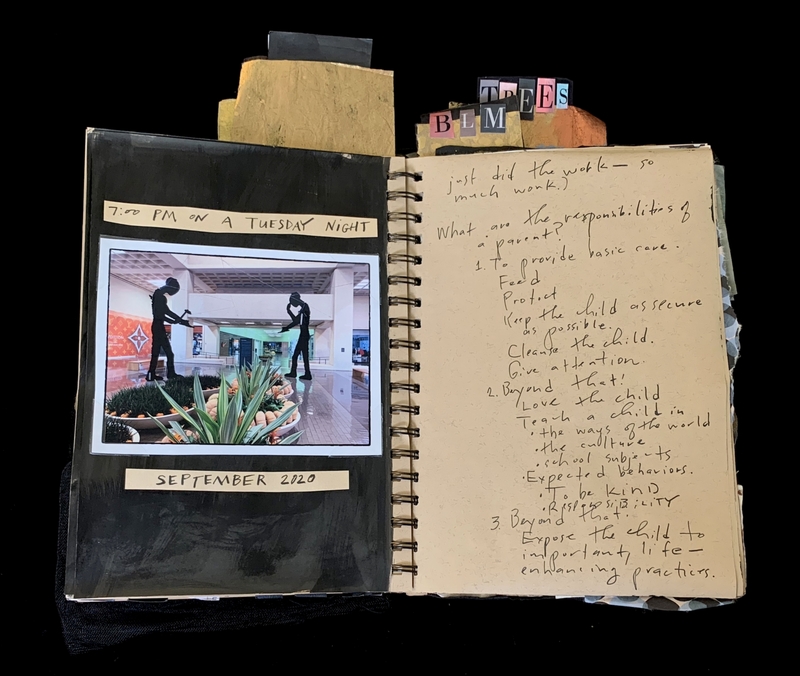 TREES
BLM
7:00 PM ON A TUESDAY NIGHT
SEPTEMBER 2020
just did the work — so
much work.)
What are the responsibilities of
a parent?
1. To provide basic care.
Feed
Protect
Keep the child as secure
as possible.
Cleanse the child.
Give attention.
2. Beyond that!
Love the child
Teach a child in
• the ways of the world
• the culture
• school subjects
• Expected behaviors.
• To be KIND
• RESPONSIBILITY
3. Beyond that!
Expose the child to
important, life-
enhancing practices.